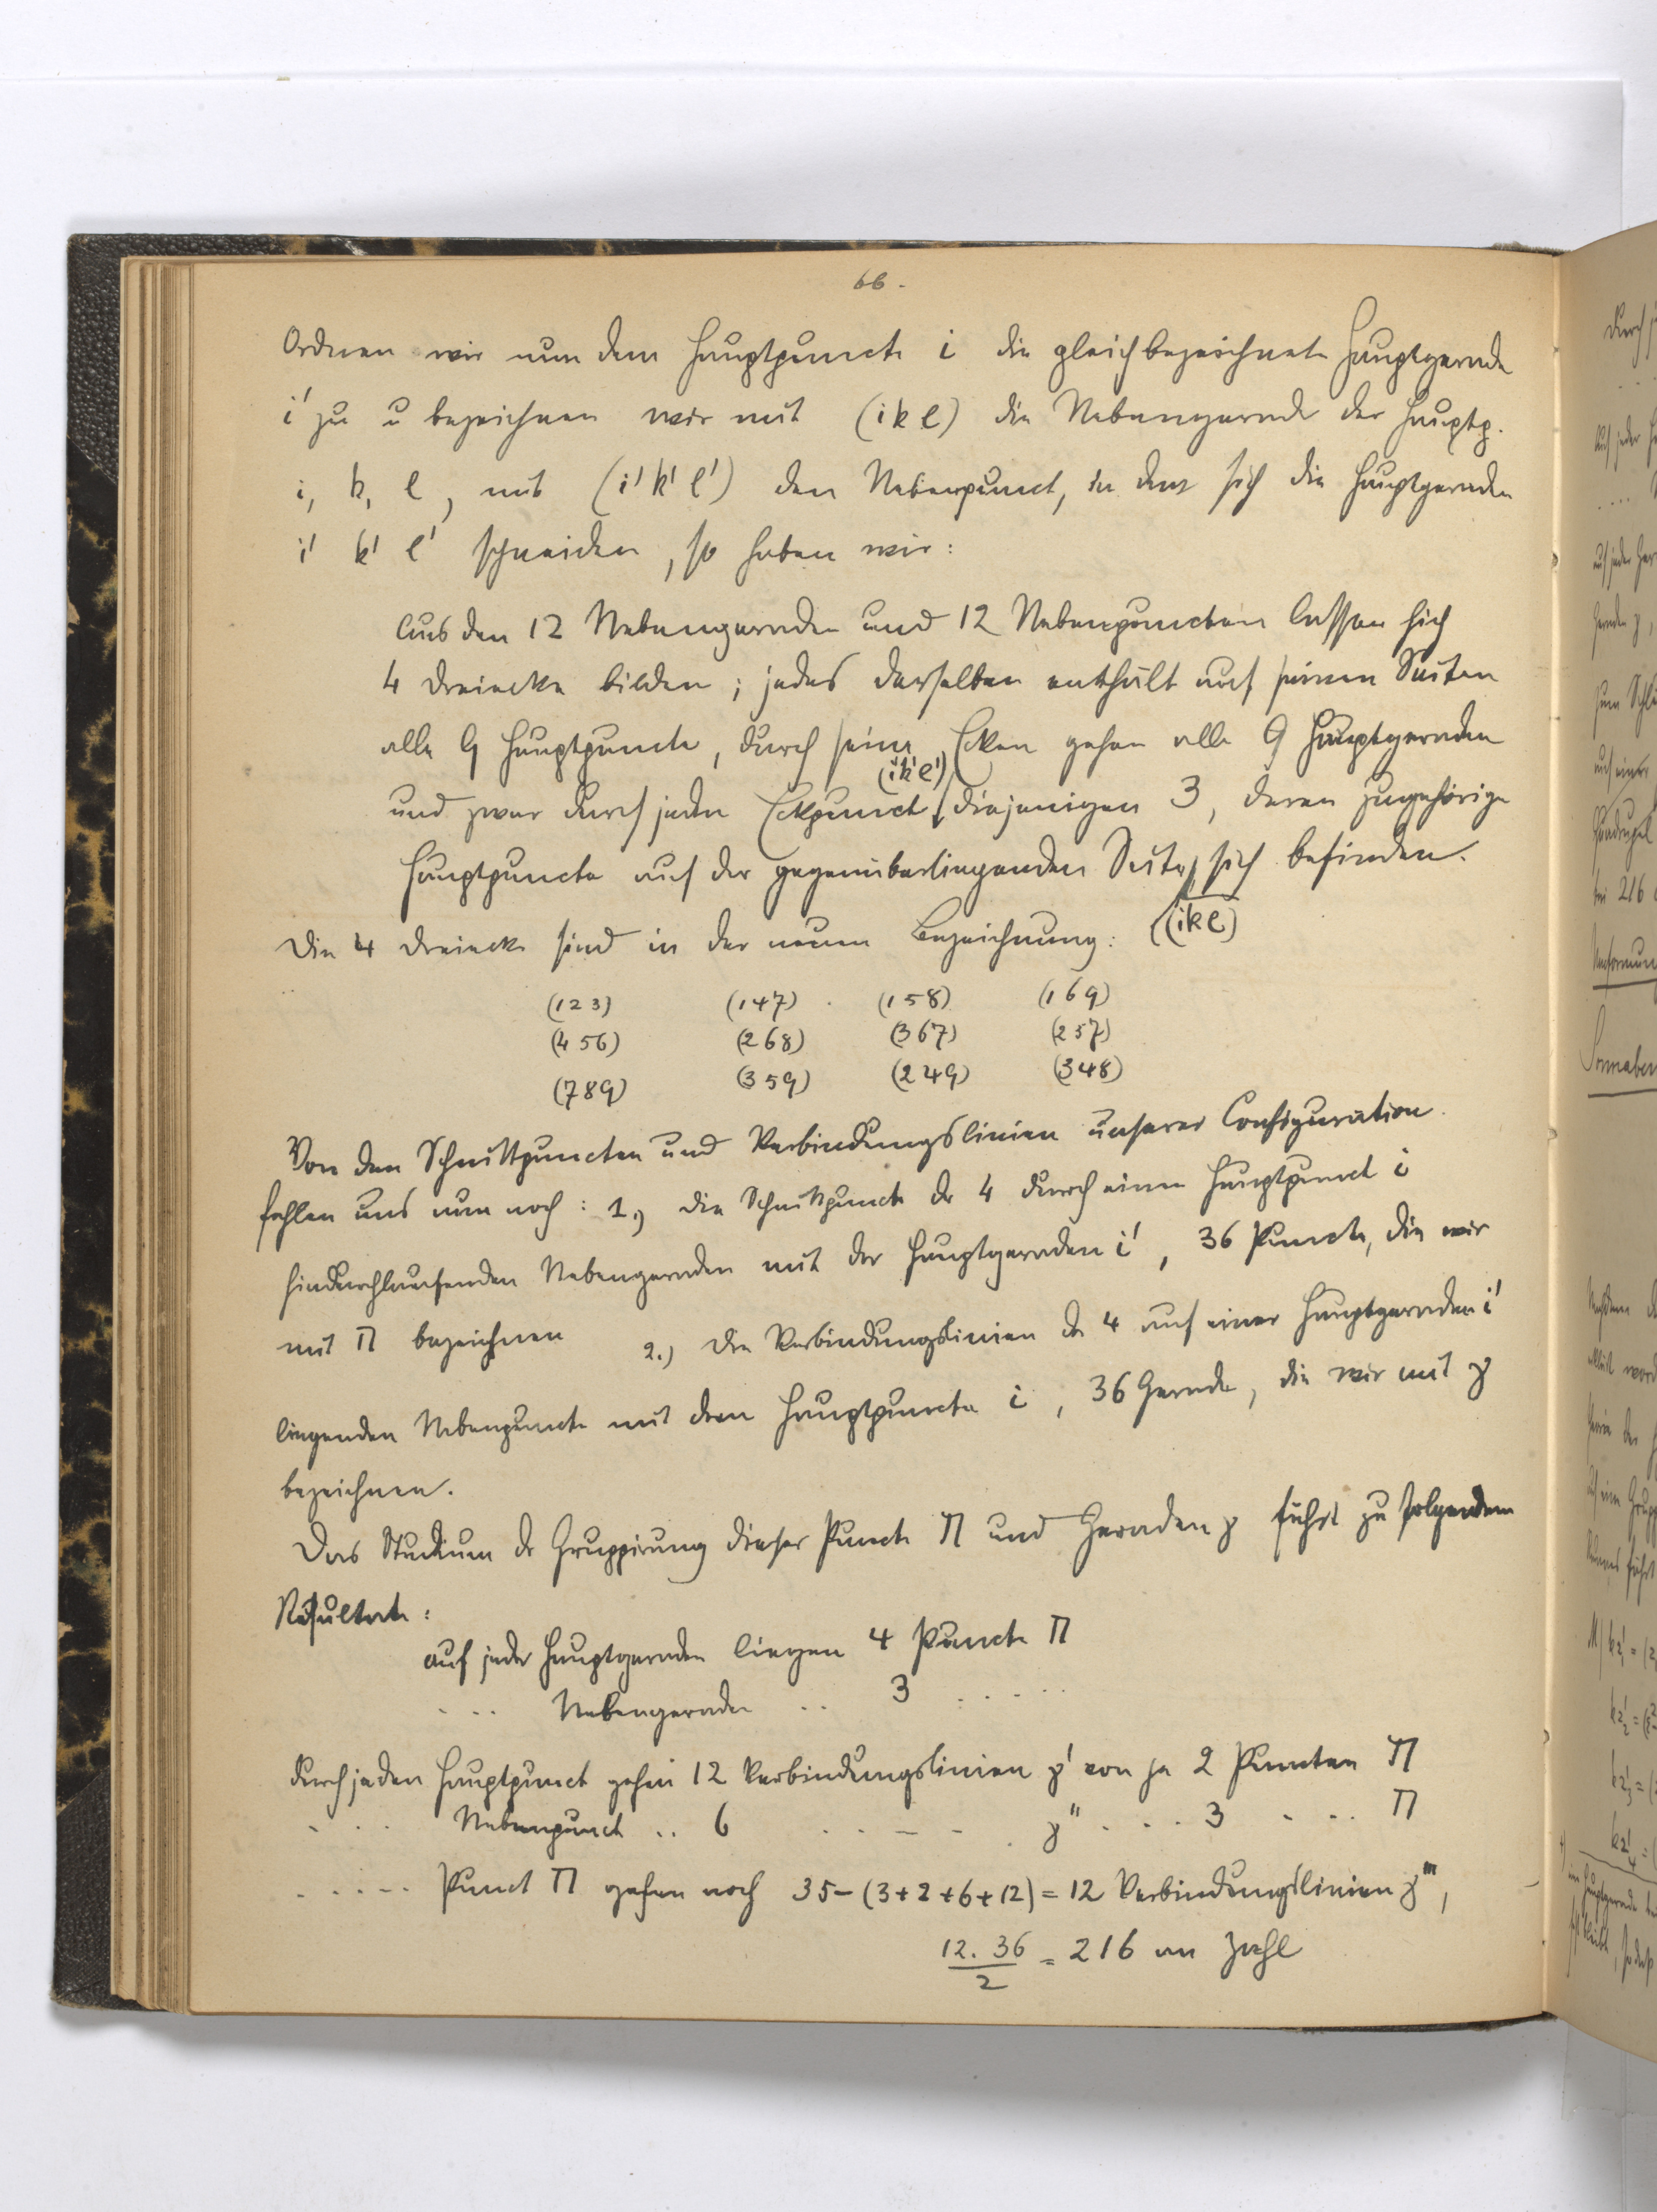 66.
Ordnen wir nun dem Hauptpuncte i die gleichbezeichnete Hauptgerade
i' zu u bezeichnen wir mit (ikl) die Nebengerade der Hauptp.
i, k, l, mit (i'k'l') den Nebenpunct, in dem sich die Hauptgeraden
i' k' l' schneiden, so haben wir:
Aus den 12 Nebengeraden und 12 Nebenpuncten lassen sich
4 Dreiecke bilden; jedes derselben enthält auf seinen Seiten
alle 9 Hauptpuncte, durch seine Ecken gehen alle 9 Hauptgeraden
(i'k'l')
und zwar durch jeden Eckpunct diejenigen 3, deren zugehörige
Hauptpuncte auf der gegenüberliegenden Seite sich befinden.
(ikl)
Die 4 Dreiecke sind in der neuen Bezeichnung:
(123) (147) (158) (169)
(456) (268) (367) (257)
(789) (359) (249) (348)
Von den Schnittpuncten und Verbindungslinien unserer Configuration
fehlen uns nun noch: 1.) die Schnittpuncte der 4 durch einen Hauptpunct i
hindurchlaufenden Nebengeraden mit der Hauptgeraden i', 36 Puncte, die wir
mit Π bezeichnen 2.) die Verbindungslinien der 4 auf einer Hauptgeraden i'
liegenden Nebenpuncte mit dem Hauptpuncte i, 36 Gerade, die wir mit γ
bezeichnen.
Das Studium der Gruppirung dieser Puncte Π und Geraden γ führt zu folgendem
Resultate:
auf jeder Hauptgeraden liegen 4 Puncte Π
. . . Nebengeraden .. 3 . . . . .
durch jeden Hauptpunct gehen 12 Verbindungslinien γ' von je 2 Puncten Π
. . . Nebenpunct .. 6 . . - - . γ'' . . . 3 . . . Π
. . . . . Punct Π gehen noch 35-(3+2+6+12)=12 Verbindungslinien γ''',
12. 36 / 2 = 216 an Zahl